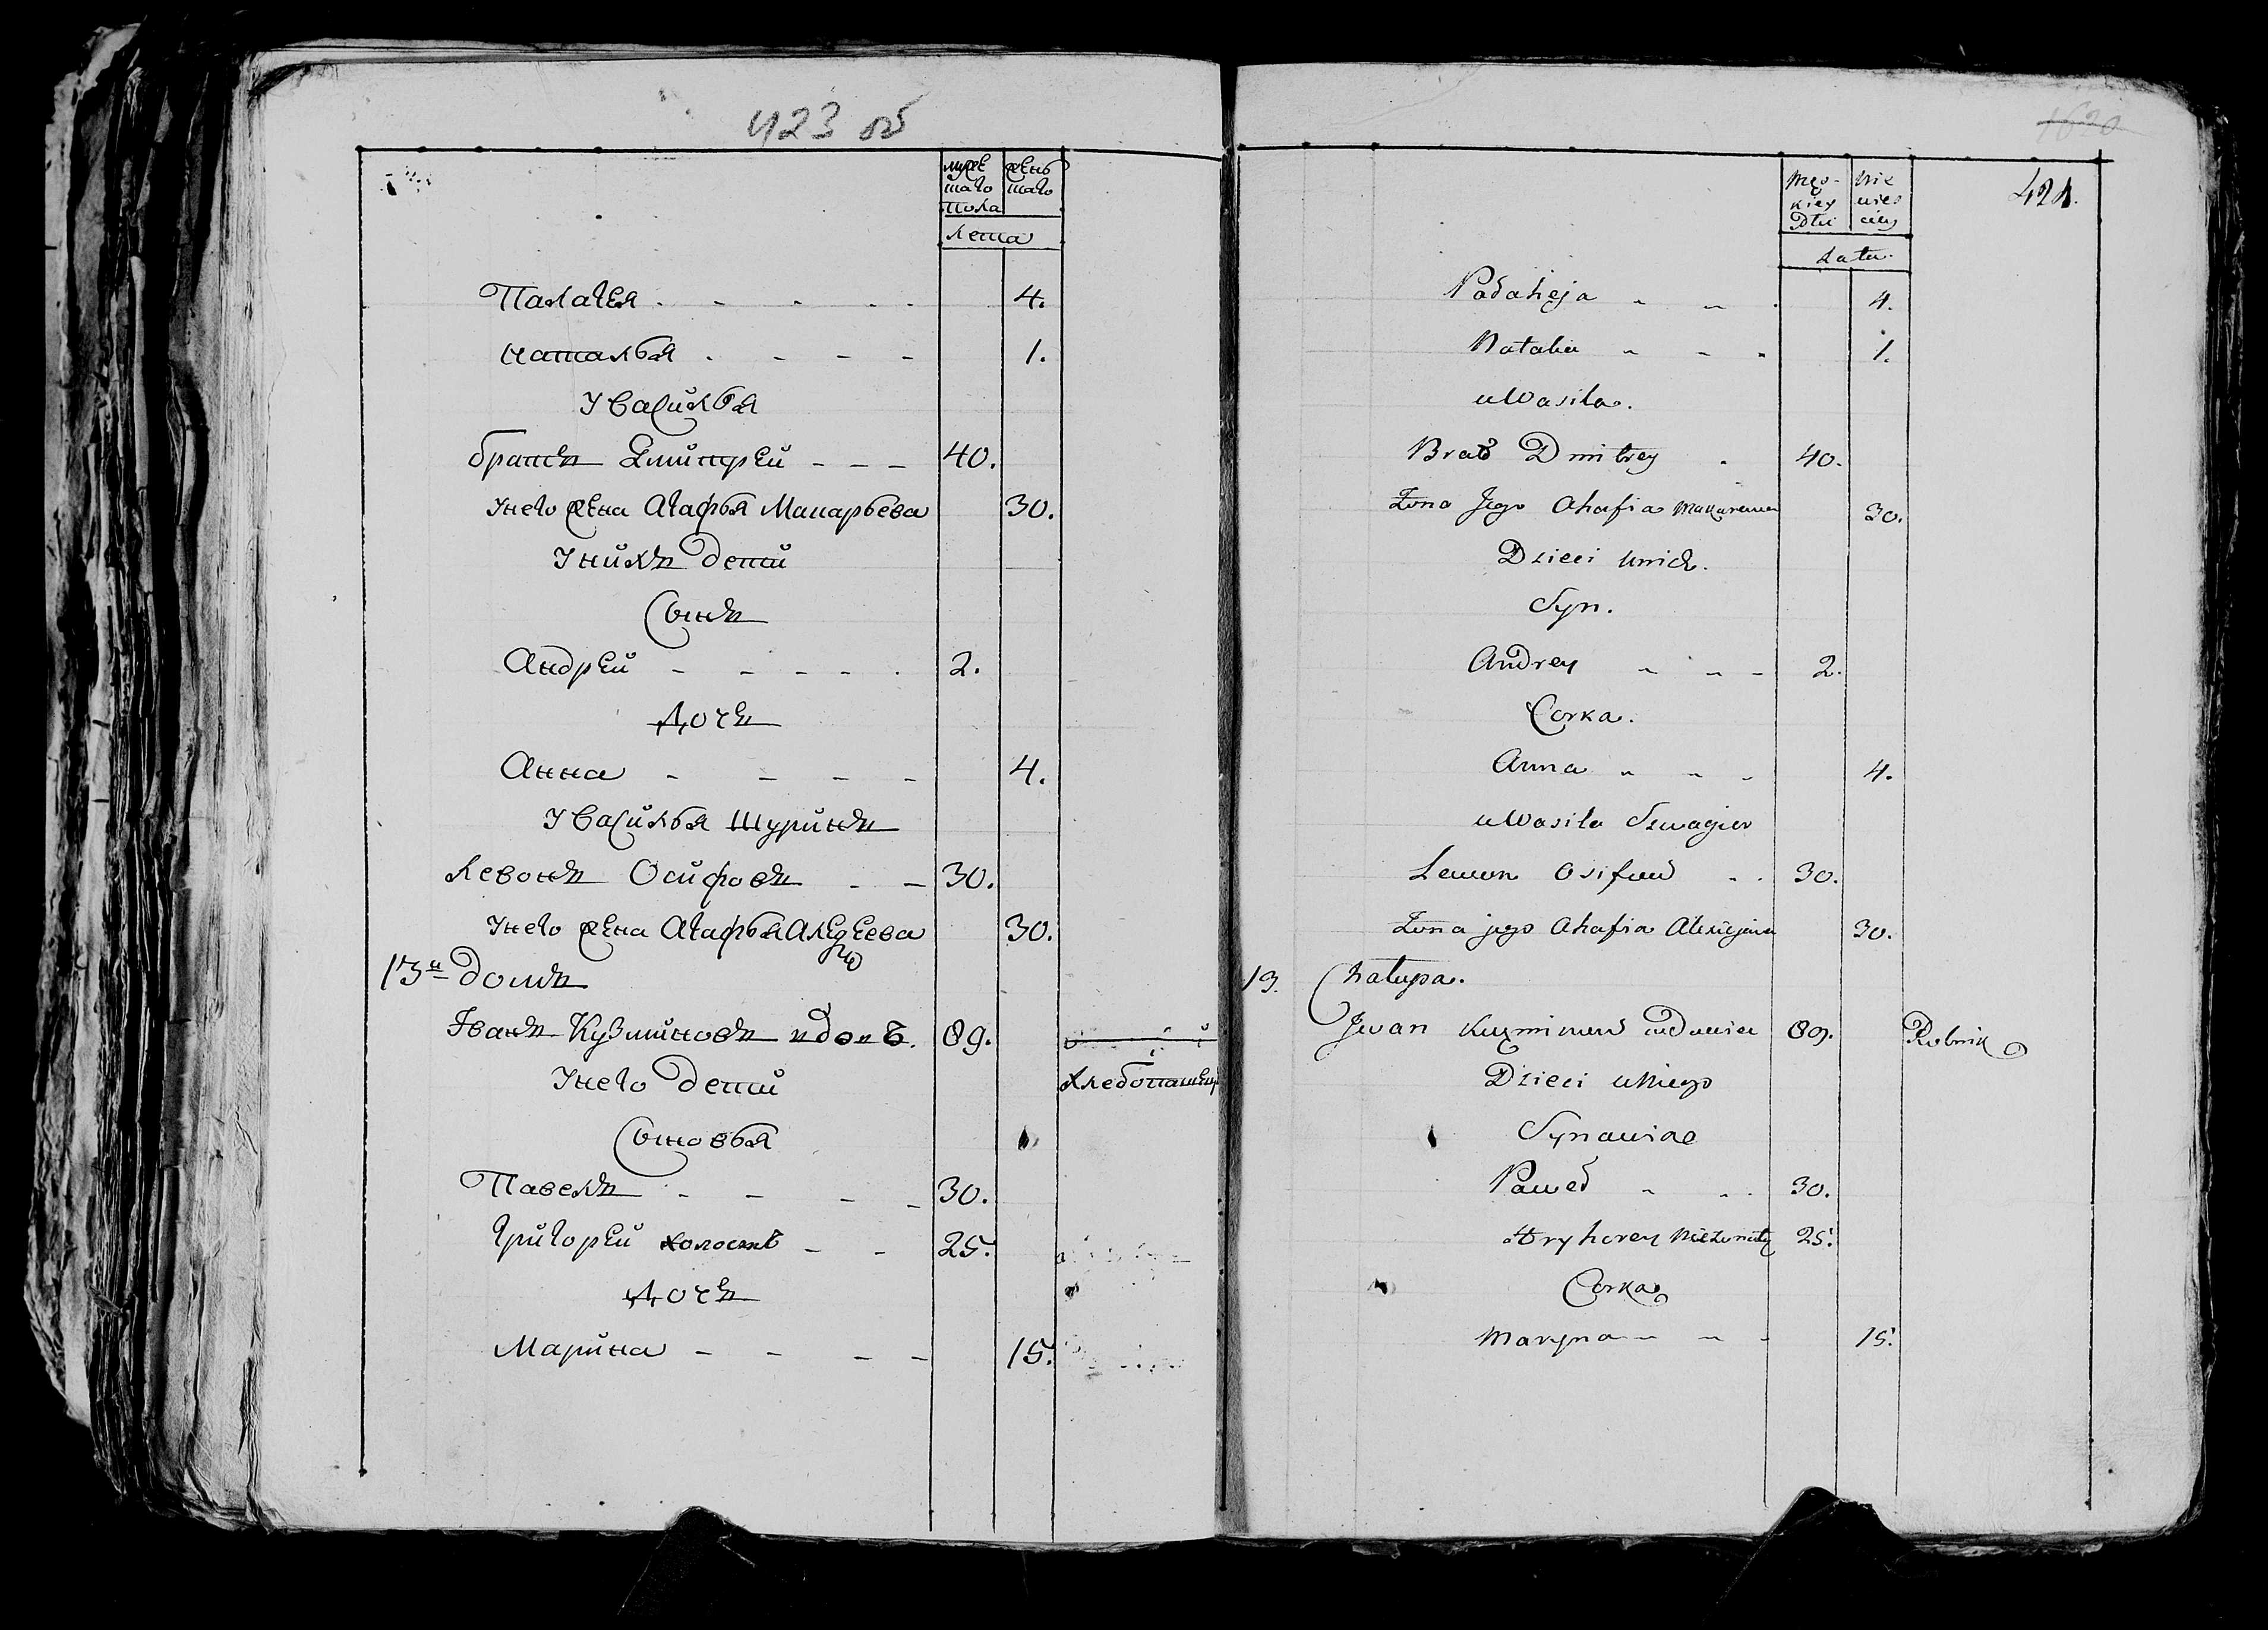 423 об
муже
скаго
пола
женъ
скаго
лета
Палагея 4.
Наталья 1.
У Василья
братъ Дмитрей 40.
У него жена Агафья Макарьева 30.
У нихъ дети
Сынъ
Андрей 2.
Дочь
Анна 4.
У Василья Шуринъ
Левонъ Осифовъ 30.
У него жена Агафья Алексеева 30.
13й домъ
Іванъ Кузминовъ вдовъ. 89.
У него дети хлебопашецъ
Сыновья
Павелъ 30.
Григорей холостъ 25.
Дочь
Марина 15.
1620
424.
Męz-
kiey
Płci
Nie
wies
ciey
Lata.
Pałaheja 4.
Natalia 1.
u Wasila.
Brat Dmitrey 40.
Żona Jego Ahafia Makarewa 30.
Dzieci unich.
Syn.
Andrey 2.
Corka.
Anna 4.
u Wasila Szwagier
Lewon Osifow 30.
Żona jego Ahafia Alexiejewa 30.
13. Chałupa.
Jwan Kuzminow wdowiec 89. Rolnik
Dzieci uniego
Synowie
Paweł 30.
Hryhorey nieżonaty 25.
Corka
Maryna 15.